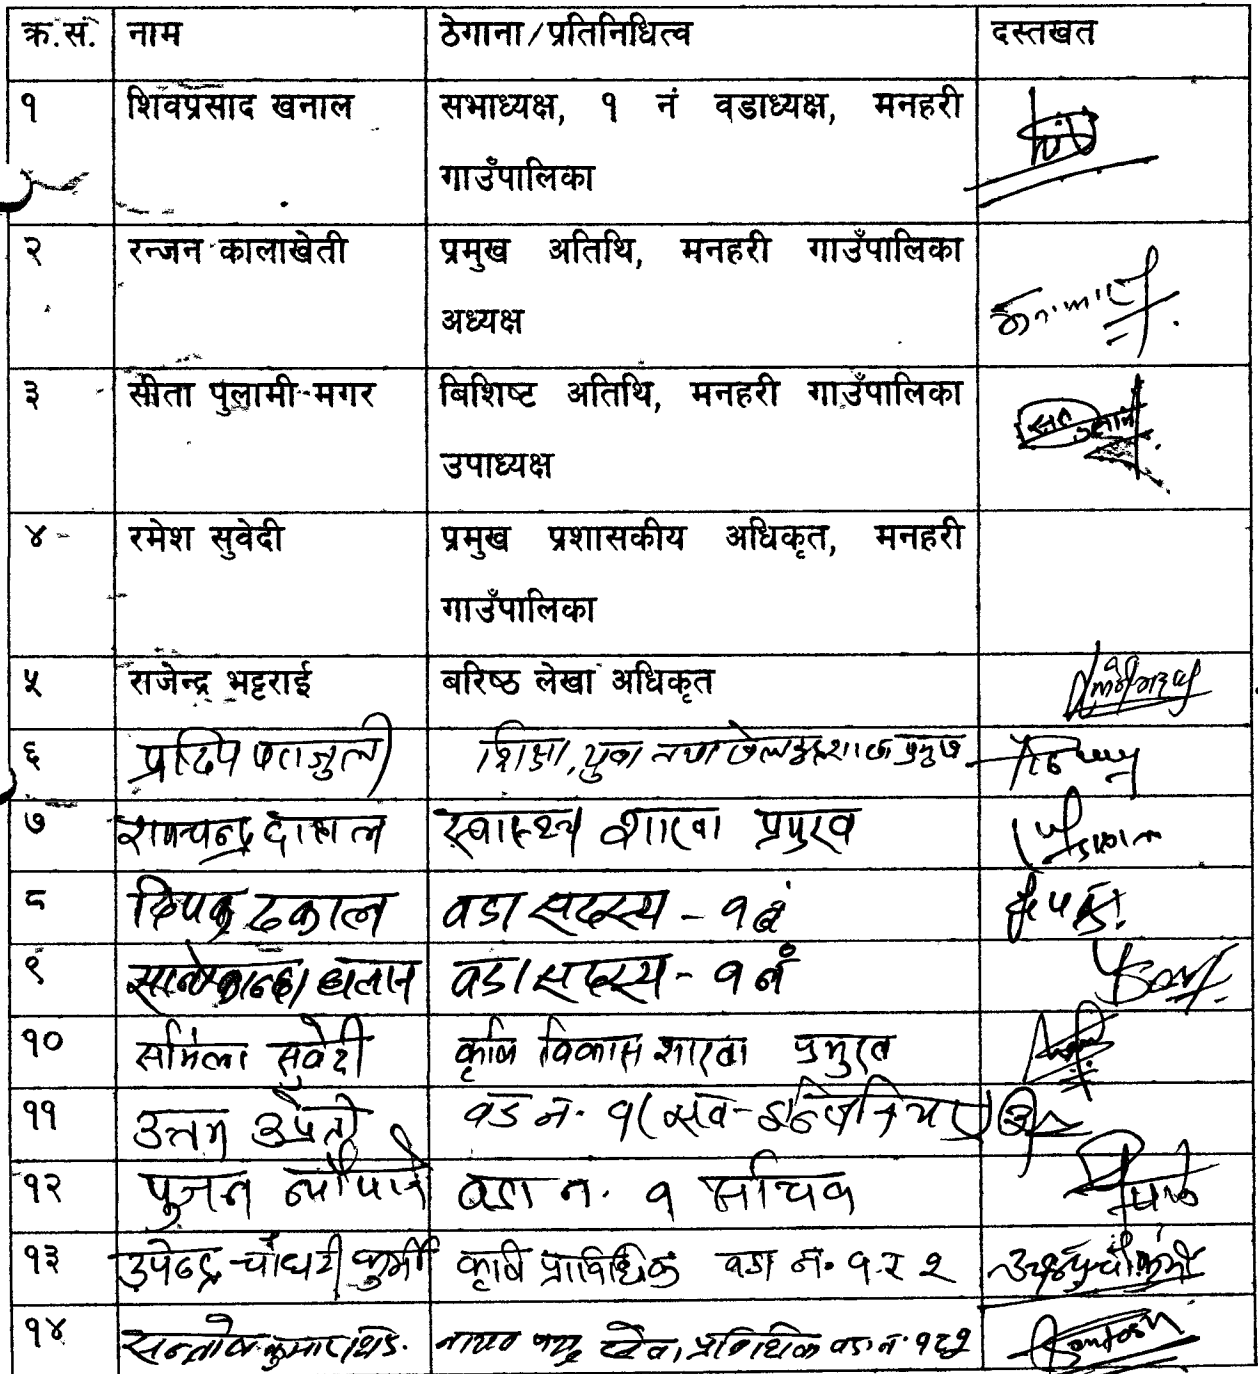 क्र.सं. नाम ठेगाना/प्रतिनिधित्व दस्तखत
१ शिवप्रसाद खनाल सभाध्यक्ष, १ नं वडाध्यक्ष, मनहरी
गाउँपालिका
२ रन्जन कालाखेती प्रमुख अतिथि, मनहरी गाउँपालिका
अध्यक्ष
३ सीता पुलामी मगर बिशिष्ट अतिथि, मनहरी गाउँपालिका
उपाध्यक्ष
४ रमेश सुवेदी प्रमुख प्रशासकीय अधिकृत, मनहरी
गाउँपालिका
५ राजेन्द्र भट्टराई बरिष्ठ लेखा अधिकृत
६ प्रदिप पराजुली शिक्षा, युवा तथा खेलकुद शाखा प्रमुख
७ रामचन्द्र दाहाल स्वास्थ्य शाखा प्रमुख
८ दिपक ढकाल वडा सदस्य - १ नं
९ वडा सदस्य - १ नं
१० सर्मिला सुवेदी कृषि विकास शाखा प्रमुख
११ उत्तम उप्रेती वडा नं. १ (सव-इन्जिनियर)
१२ पुजन न्यौपाने वडा नं. १ सचिव
१३ उपेन्द्र चौधरी कुर्मी कृषि प्राविधिक वडा नं. १ र २
१४ सन्तोष कुमार नायब पशु सेवा प्राविधिक वडा नं.